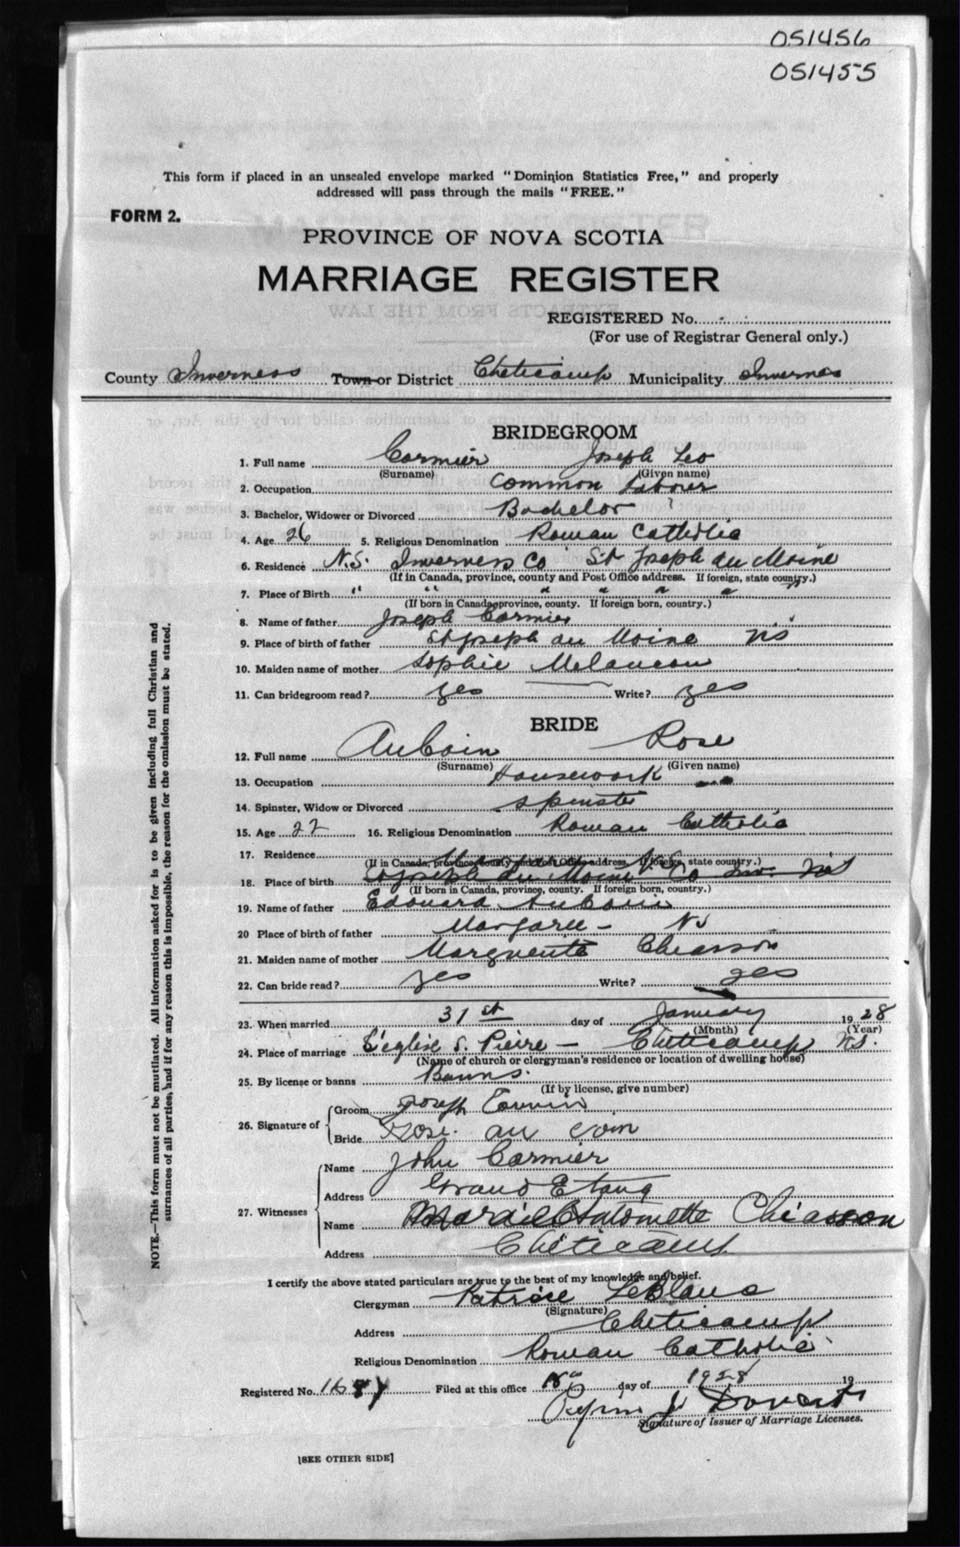 051456
051455
This form if placed in an unsealed envelope marked "Dominion Statistics Free," and properly
addressed will pass through the mails "FREE."
FORM 2.
PROVINCE OF NOVA SCOTIA
MARRIAGE REGISTER
REGISTERED No.
(For use of Registrar General only.)
County Inverness Town or District Cheticamp Municipality Inverness
BRIDEGROOM
1. Full name Cormier Joseph Leo
(Surname) (Given name)
2. Occupation Common Laborer
3. Bachelor, Widower or Divorced Bachelor
4. Age 26 5. Religious Denomination Roman Catholic
6. Residence N.S. Inverness Co St Joseph du Moine
(If in Canada, province, county and Post Office address. If foreign, state country.)
7. Place of Birth " " " " " "
(If born in Canada, province, county. If foreign born, country.)
8. Name of father Joseph Cormier
9. Place of birth of father St Joseph du Moine NS
10. Maiden name of mother Sophie Melancon
11. Can bridegroom read? yes Write? yes
BRIDE
12. Full name AuCoin Rose
(Surname) (Given name)
13. Occupation Housework
14. Spinster, Widow or Divorced Spinster
15. Age 22 16. Religious Denomination Roman Catholic
17. Residence
(If in Canada, province, county and Post Office address. If foreign, state country.)
18. Place of birth St Joseph du Moine Co Inv. NS
(If born in Canada, province, county. If foreign born, country.)
19. Name of father Edouard AuCoin
20 Place of birth of father Margaree - NS
21. Maiden name of mother Marguerite Chiasson
22. Can bride read? yes Write? yes
23. When married 31st day of January 1928
(Month) (Year)
24. Place of marriage L'eglise S. Pierre - Cheticamp NS.
(Name of church or clergyman's residence or location of dwelling house)
25. By license or banns Banns.
(If by license, give number)
26. Signature of
Groom Joseph
Bride Rose au coin
27. Witnesses
Name John Cormier
Address Grand Etang
Name Chiasson
Address Cheticamp
I certify the above stated particulars are true to the best of my knowledge and belief.
Clergyman LeBlanc
(Signature)
Address Cheticamp
Religious Denomination Roman Catholic
Registered No. Filed at this office day of 1928 19
Signature of Issuer of Marriage Licenses.
[SEE OTHER SIDE]
NOTE.—This form must not be mutilated. All information asked for is to be given including full Christian and
surnames of all parties, and if for any reason this is impossible, the reason for the omission must be stated.